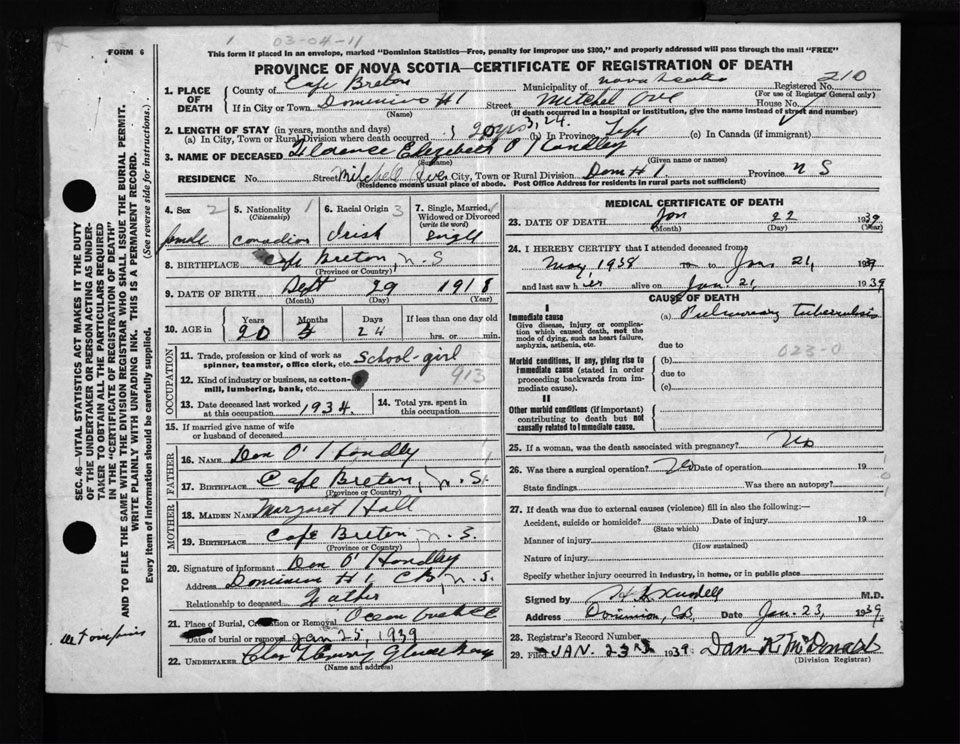 FORM 6
03-04-11
This form if placed in an envelope, marked "Dominion Statistics—Free, penalty for improper use $300," and properly addressed will pass through the mail "FREE"
PROVINCE OF NOVA SCOTIA—CERTIFICATE OF REGISTRATION OF DEATH
1. PLACE OF DEATH
County of Cape Breton Municipality of Nova Scotia Registered No. 210
(For use of Registrar General only)
If in City or Town Dominion #1 Street Mitchel Ave House No.
(Name) (If death occurred in a hospital or institution, give name instead of street and number)
2. LENGTH OF STAY (in years, months and days)
(a) In City, Town or Rural Division where death occurred 20 yrs 3, 24. (b) In Province Life (c) In Canada (if immigrant)
3. NAME OF DECEASED Florence Elizabeth O'Handley
(Surname) (Given name or names)
RESIDENCE No. Street Mitchell Ave City, Town or Rural Division Dom #1. Province N S
(Residence means usual place of abode. Post Office Address for residents in rural parts not sufficient)
4. Sex 2 female
5. Nationality 1 (Citizenship) Canadian
6. Racial Origin 3 Irish
7. Single, Married, Widowed or Divorced (write the word) Single
8. BIRTHPLACE Cape Breton, N. S
(Province or Country)
9. DATE OF BIRTH Sept 29 1918
(Month) (Day) (Year)
10. AGE in Years Months Days If less than one day old
20 3 24 hrs. or min.
OCCUPATION
11. Trade, profession or kind of work as spinner, teamster, office clerk, etc. School-girl
12. Kind of industry or business, as cotton-mill, lumbering, bank, etc. 913
13. Date deceased last worked at this occupation 1934.
14. Total yrs. spent in this occupation
15. If married give name of wife or husband of deceased
FATHER
16. NAME Dan O'Handley
17. BIRTHPLACE Cape Breton, N. S.
(Province or Country)
MOTHER
18. MAIDEN NAME Margaret Hall
19. BIRTHPLACE Cape Breton N. S.
(Province or Country)
20. Signature of informant Dan O'Handley
Address Dominion #1, CB, N. S.
Relationship to deceased Father
21. Place of Burial, Cremation or Removal
Date of burial or removal Jan 25, 1939
22. UNDERTAKER
(Name and address)
MEDICAL CERTIFICATE OF DEATH
23. DATE OF DEATH Jan 22 1939
(Month) (Day) (Year)
24. I HEREBY CERTIFY that I attended deceased from
May, 1938 to Jan 21, 1939
and last saw her alive on Jan. 21, 1939
CAUSE OF DEATH
I
Immediate cause
Give disease, injury or complication which caused death, not the mode of dying, such as heart failure, asphyxia, asthenia, etc.
(a) Pulmonary tuberculosis
due to
023-0
Morbid conditions, if any, giving rise to immediate cause (stated in order proceeding backwards from immediate cause).
(b)
due to
(c)
II
Other morbid conditions (if important) contributing to death but not causally related to immediate cause.
25. If a woman, was the death associated with pregnancy? No
26. Was there a surgical operation? No Date of operation 19
State findings Was there an autopsy?
27. If death was due to external causes (violence) fill in also the following:—
Accident, suicide or homicide? Date of injury 19
(State which)
Manner of injury
(How sustained)
Nature of injury
Specify whether injury occurred in industry, in home, or in public place
Signed by M.D.
Address Dominion, CB Date Jan. 23, 1939
28. Registrar's Record Number
29. Filed JAN. 23rd 1939 Dan K. McDonald
(Division Registrar)
SEC. 46—VITAL STATISTICS ACT MAKES IT THE DUTY
OF THE UNDERTAKER OR PERSON ACTING AS UNDER-
TAKER TO OBTAIN ALL THE PARTICULARS REQUIRED
IN THE "CERTIFICATE OF REGISTRATION OF DEATH"
AND TO FILE THE SAME WITH THE DIVISION REGISTRAR WHO SHALL ISSUE THE BURIAL PERMIT.
WRITE PLAINLY WITH UNFADING INK. THIS IS A PERMANENT RECORD.
Every item of information should be carefully supplied. (See reverse side for instructions.)